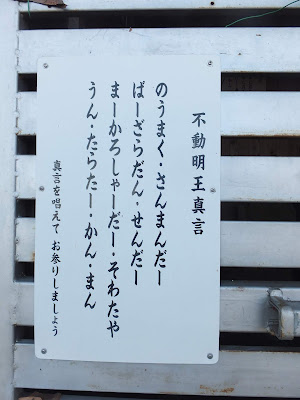 不動明王真言
のうまく・さんまんだー
ばーざらだん・せんだー
まーかろしゃーだー・そわたや
うん・たらたー・かん・まん
真言を唱えて お参りしましょう